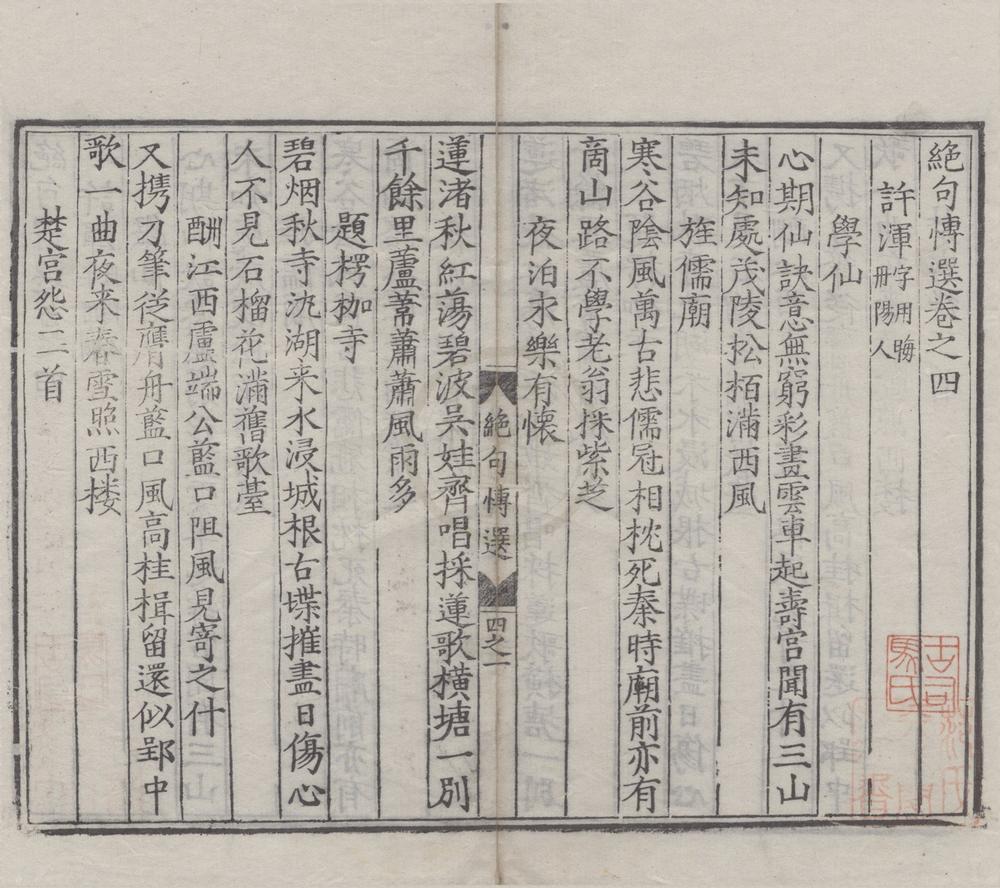 絕句愽選卷之四
許渾字用晦丹陽人
學仙
心期仙訣意無窮彩畫雲車起壽宮聞有三山
未知處茂陵松栢滿西風
旌儒廟
寒谷陰風萬古悲儒冠相枕死秦時廟前亦有
商山路不學老翁採紫芝
夜泊永樂有懷
蓮渚秋紅蕩碧波吳娃齊唱採蓮歌橫塘一別
千餘里蘆葦蕭蕭風雨多
題楞枷寺
碧烟秋寺汎湖来水浸城根古堞摧盡日傷心
人不見石榴花滿舊歌臺
酬江西盧端公藍口阻風見寄之什
又携刀筆從膺舟藍口風高桂楫留還似郢中
歌一曲夜来春雪照西楼
楚宫怨二首
絕句愽選
四之一
古司馬氏